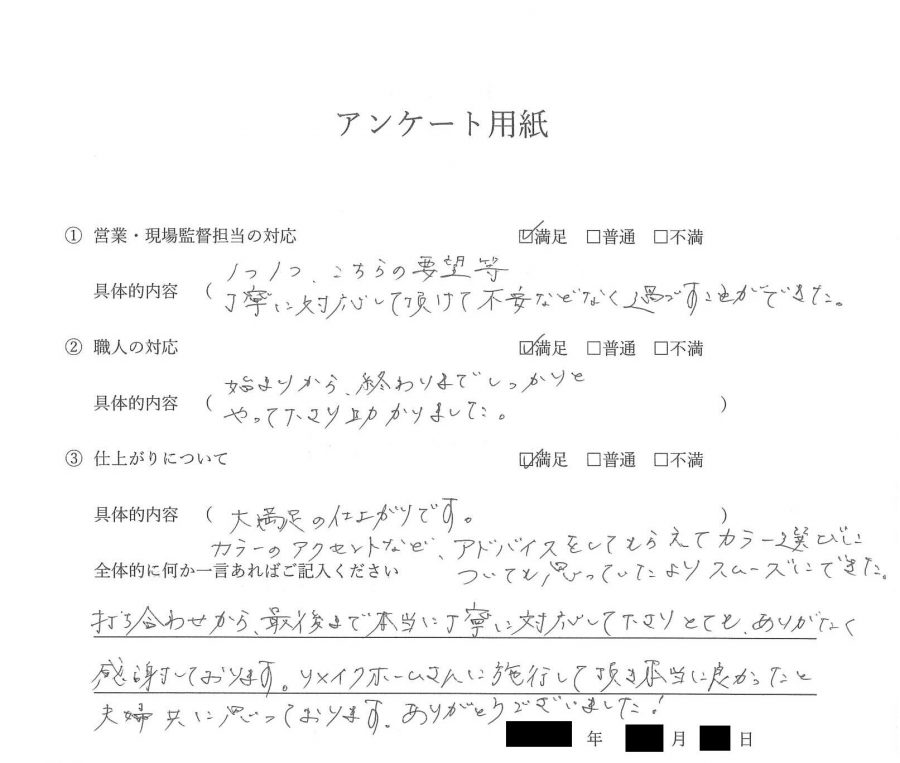 アンケート用紙
① 営業・現場監督担当の対応 ☑満足 □普通 □不満
1つ1つ、こちらの要望等
具体的内容 ( 丁寧に対応して頂けて不安などなく過ごすことができました。
② 職人の対応 ☑満足 □普通 □不満
始まりから、終わりまでしっかりと
具体的内容 ( やって下さり助かりました。 )
③ 仕上がりについて ☑満足 □普通 □不満
具体的内容 ( 大満足の仕上がりです。 )
カラーのアクセントなど、アドバイスをしてもらえてカラー選びに
全体的に何か一言あればご記入ください ついても思っていたよりスムーズにできた。
打ち合わせから、最後まで本当に丁寧に対応して下さりとても、ありがたく
感謝しております。リメイクホームさんに施行して頂き本当に良かったと
夫婦共に思っております。ありがとうございました!
年 月 日